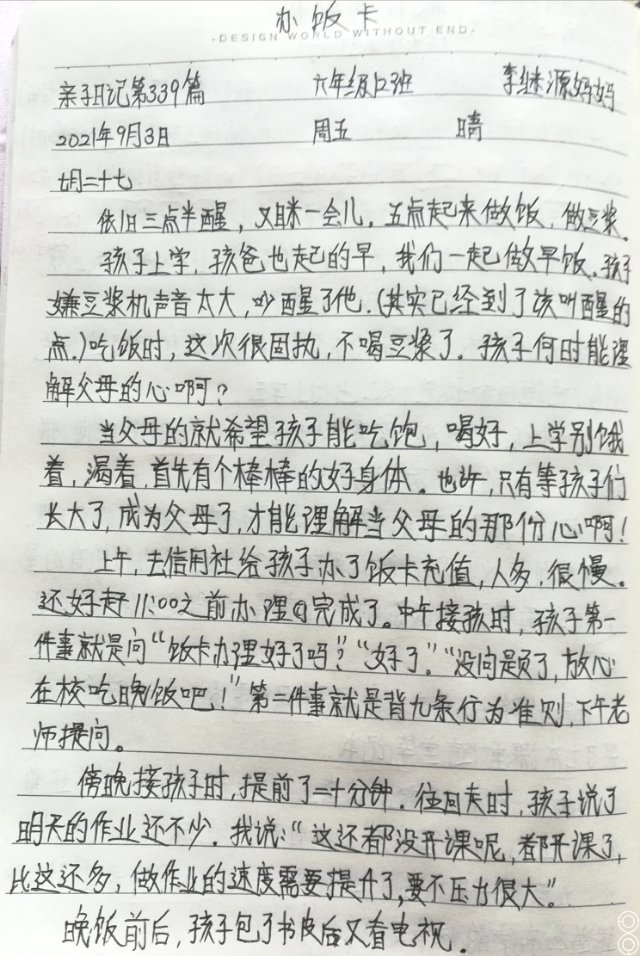 办饭卡
·DESIGN WORLD WITHOUT END·
亲子日记第339篇 六年级12班 李继源妈妈
2021年9月3日 周五 晴
七月二十七
依旧三点半醒，又眯一会儿。五点起来做饭，做豆浆。
孩子上学，孩爸也起的早，我们一起做早饭。孩子
嫌豆浆机声音太大，吵醒了他.（其实已经到了该叫醒的
点.）吃饭时，这次很固执，不喝豆浆了。孩子何时能理
解父母的心啊？
当父母的就希望孩子能吃饱，喝好，上学别饿
着，渴着，首先有个棒棒的好身体。也许，只有等孩子们
长大了，成为父母了，才能理解当父母的那份心啊！
上午，去信用社给孩子办了饭卡充值，人多，很慢。
还好赶11:00之前办理完成了。中午接孩时，孩子第一
件事就是问“饭卡办理好了吗？”“好了。”“没问题了，放心
在校吃晚饭吧！”第二件事就是背九条行为准则，下午老
师提问。
傍晚接孩子时，提前了二十分钟。往回走时，孩子说了
明天的作业还不少。我说：“这还都没开课呢，都开课了，
比这还多，做作业的速度需要提升了，要不压力很大。”
晚饭前后，孩子包了书皮后又看电视.